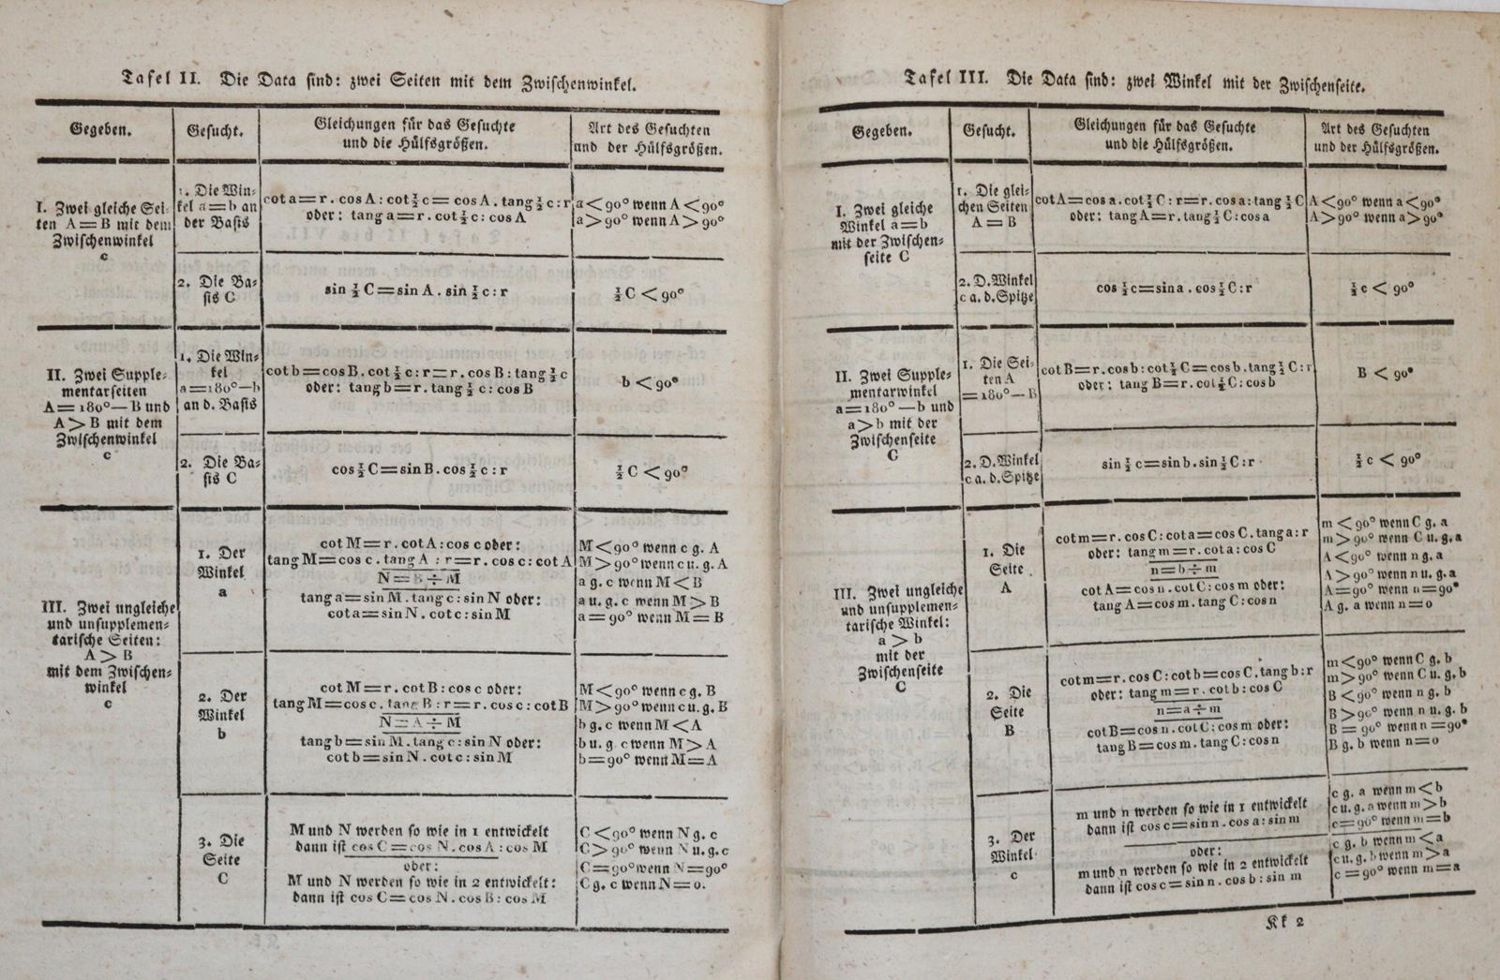 Tafel II. Die Data sind: zwei Seiten mit dem Zwischenwinkel.
Gegeben.
Gesucht.
Gleichungen für das Gesuchte
und die Hülfsgrößen.
Art des Gesuchten
und der Hülfsgrößen.
I. Zwei gleiche Sei-
ten A=B mit dem
Zwischenwinkel
c
1. Die Win-
kel a=b an
der Basis
cot a=r. cos A: cot ½ c= cos A. tang ½ c: r
oder: tang a=r. cot ½ c: cos A
a<90° wenn A<90°
a>90° wenn A>90°
2. Die Ba-
sis C
sin ½ C=sin A. sin ½ c: r
½ C<90°
II. Zwei Supple-
mentarseiten
A=180°—B und
A>B mit dem
Zwischenwinkel
c
1. Die Win-
kel
a=180°—b
an d. Basis
cot b=cos B. cot ½ c: r=r. cos B: tang ½ c
oder: tang b=r. tang ½ c: cos B
b<90°
2. Die Ba-
sis C
cos ½ C=sin B. cos ½ c: r
½ C<90°
III. Zwei ungleiche
und unsupplemen-
tarische Seiten:
A>B
mit dem Zwischen-
winkel
c
1. Der
Winkel
a
cot M=r. cot A: cos c oder:
tang M=cos c. tang A: r=r. cos c: cot A
N=B÷M
tang a=sin M. tang c: sin N oder:
cot a=sin N. cot c: sin M
M<90° wenn c g. A
M>90° wenn c u. g. A
a g. c wenn M<B
a u. g. c wenn M>B
a=90° wenn M=B
2. Der
Winkel
b
cot M=r. cot B: cos c oder:
tang M=cos c. tang B: r=r. cos c: cot B
N=A÷M
tang b=sin M. tang c: sin N oder:
cot b=sin N. cot c: sin M
M<90° wenn c g. B
M>90° wenn c u. g. B
b g. c wenn M<A
b u. g. c wenn M>A
b=90° wenn M=A
3. Die
Seite
C
M und N werden so wie in 1 entwickelt
dann ist cos C=cos N. cos A: cos M
oder:
M und N werden so wie in 2 entwickelt:
dann ist cos C=cos N. cos B: cos M
C<90° wenn N g. c
C>90° wenn N u. g. c
C=90° wenn N=90°
C g. c wenn N=0.
Tafel III. Die Data sind: zwei Winkel mit der Zwischenseite.
Gegeben.
Gesucht.
Gleichungen für das Gesuchte
und die Hülfsgrößen.
Art des Gesuchten
und der Hülfsgrößen.
I. Zwei gleiche
Winkel a=b
mit der Zwischen-
seite C
1. Die glei-
chen Seiten
A=B
cot A=cos a. cot ½ C: r=r. cos a: tang ½ C
oder: tang A=r. tang ½ C: cos a
A<90° wenn a<90°
A>90° wenn a>90°
2. D. Winkel
c a. d. Spitze
cos ½ c=sin a. cos ½ C: r
½ c<90°
II. Zwei Supple-
mentarwinkel
a=180°—b und
a>b mit der
Zwischenseite
C
1. Die Sei-
ten A
=180°—B
cot B=r. cos b: cot ½ C=cos b. tang ½ C: r
oder: tang B=r. cot ½ C: cos b
B<90°
2. D. Winkel
c a. d. Spitze
sin ½ c=sin b. sin ½ C: r
½ c<90°
III. Zwei ungleiche
und unsupplemen-
tarische Winkel:
a>b
mit der
Zwischenseite
C
1. Die
Seite
A
cot m=r. cos C: cot a=cos C. tang a: r
oder: tang m=r. cot a: cos C
n=b÷m
cot A=cos n. cot C: cos m oder:
tang A=cos m. tang C: cos n
m<90° wenn C g. a
m>90° wenn C u. g. a
A<90° wenn n g. a
A>90° wenn n u. g. a
A=90° wenn n=90°
A g. a wenn n=0
2. Die
Seite
B
cot m=r. cos C: cot b=cos C. tang b: r
oder: tang m=r. cot b: cos C
n=a÷m
cot B=cos n. cot C: cos m oder:
tang B=cos m. tang C: cos n
m<90° wenn C g. b
m>90° wenn C u. g. b
B<90° wenn n g. b
B>90° wenn n u. g. b
B=90° wenn n=90°
B g. b wenn n=0
3. Der
Winkel
c
m und n werden so wie in 1 entwickelt
dann ist cos c=sin n. cos a: sin m
oder:
m und n werden so wie in 2 entwickelt
dann ist cos c=sin n. cos b: sin m
c g. a wenn m<b
c u. g. a wenn m>b
c=90° wenn m=b
c g. b wenn m<a
c u. g. b wenn m>a
c=90° wenn m=a
Kk 2